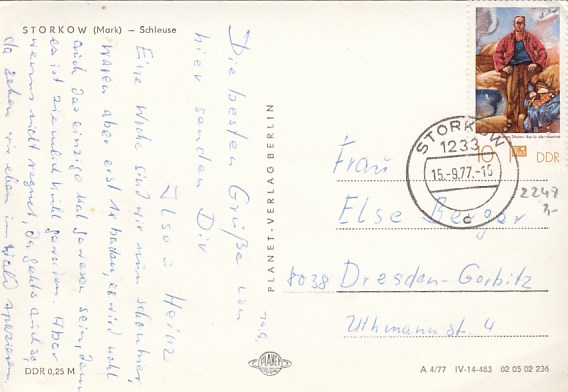 STORKOW (Mark) – Schleuse
14.9.
Die besten Grüße von
hier senden Dir
Ilse u. Heinz
Eine Woche sind wir nun schon hier,
waren aber erst 1x baden, es wird wohl
auch das einzige Mal gewesen sein, denn
es ist ziemlich kühl geworden. Aber
wenns nicht regnet, da gehts auch so,
da gehen wir eben im Wald spazieren
PLANET-VERLAG BERLIN
DDR 0,25 M
PLANET
VERLAG
STORKOW
1233
15.-9.77.-16
c
10
DDR
2247
3,-
Frau
Else Berger
8038 Dresden-Gorbitz
Uthmannstr. 4
A 4/77 IV-14-483 02 05 02 236